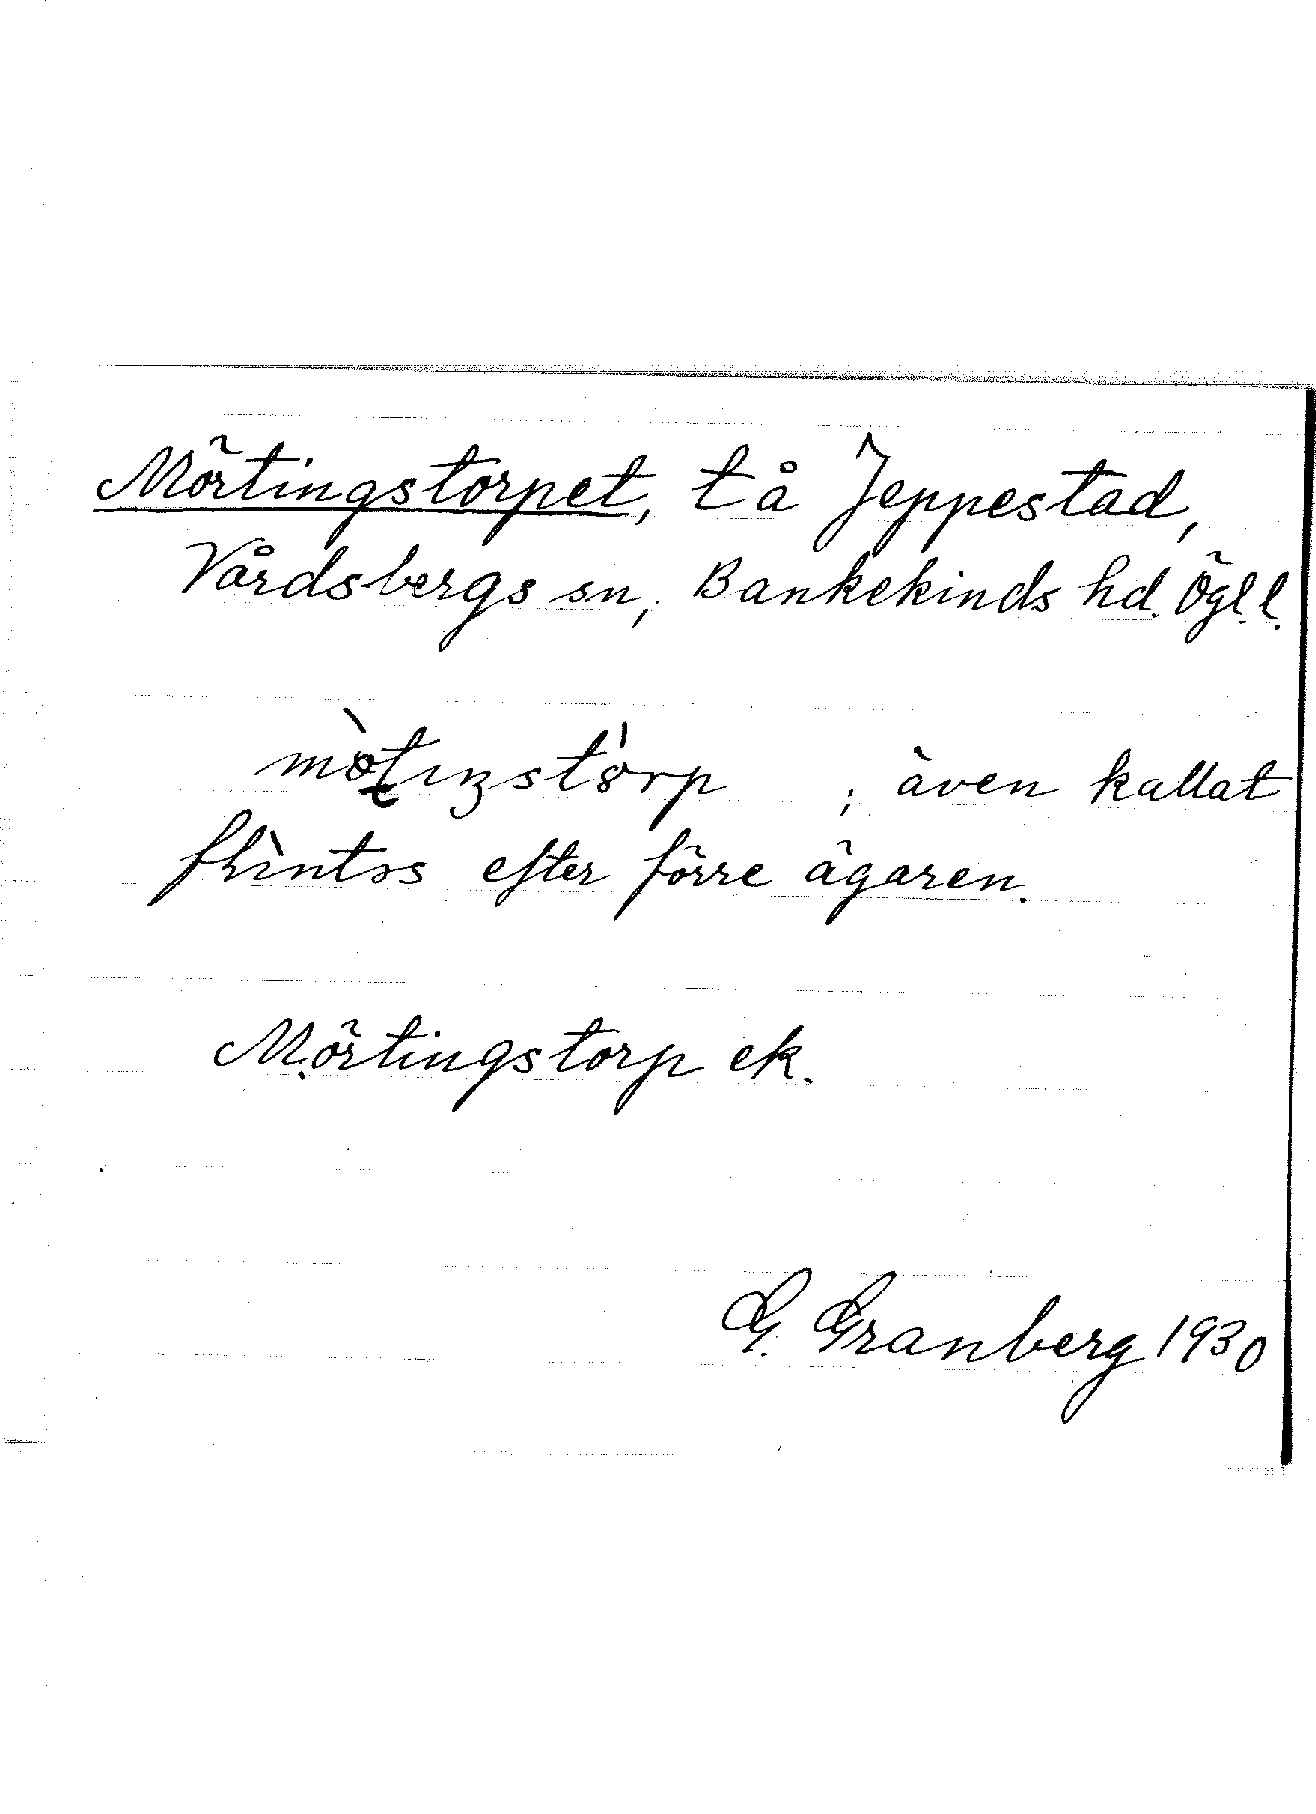 Mörtingstorpet, t å Jeppestad,
Vårdsbergs sn, Bankekinds hd. Ögl. l.
; även kallat
efter förre ägaren.
Mörtingstorp ek.
G. Granberg 1930